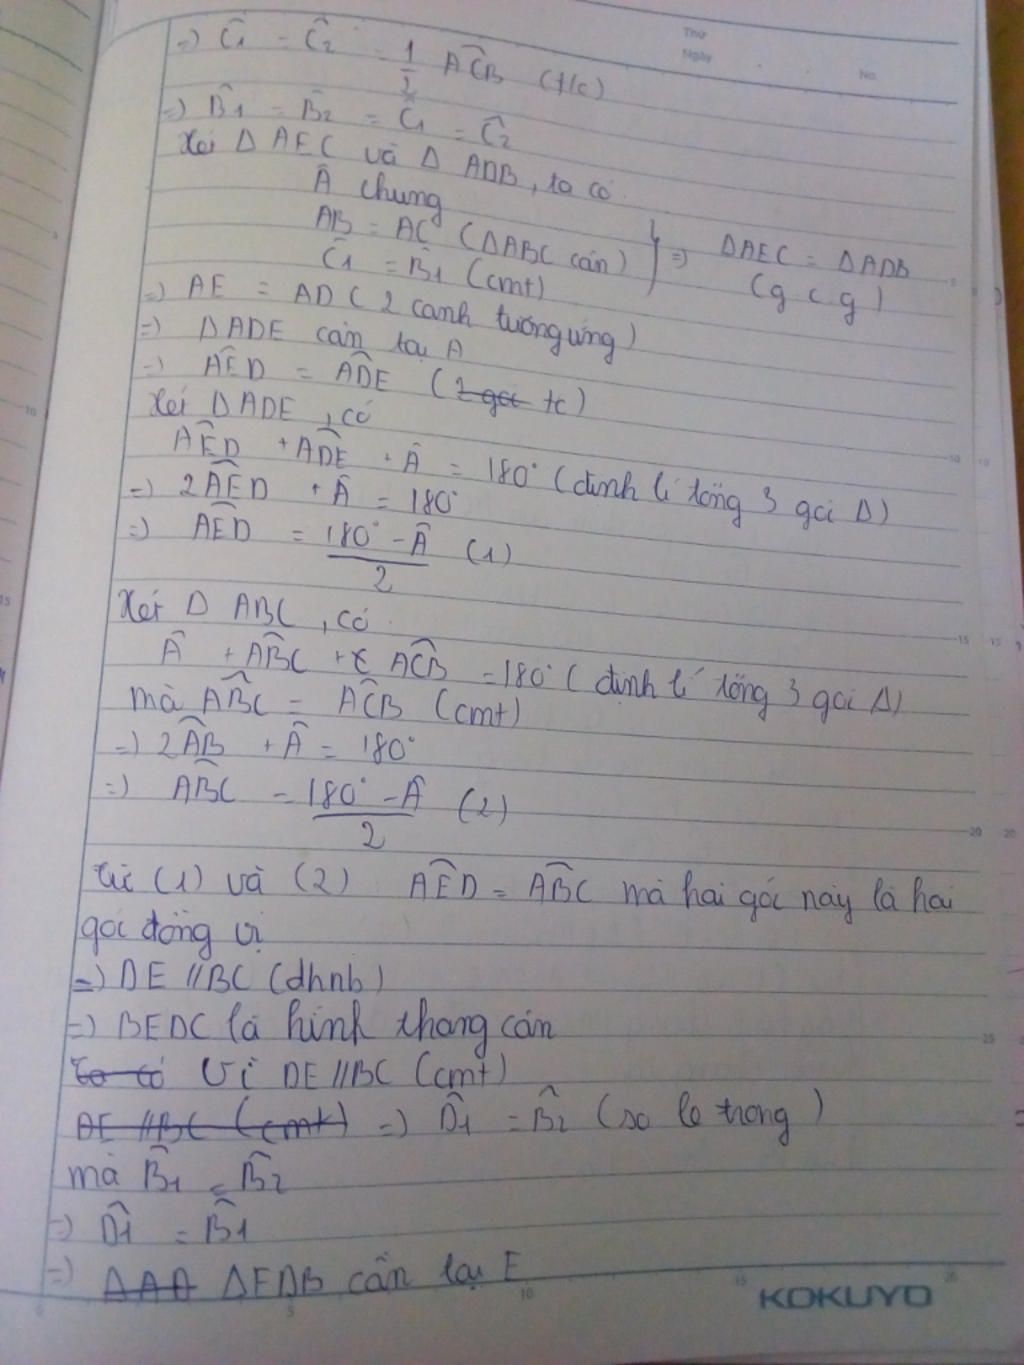 Thứ
Ngày
No.
=) Ĉ1 = Ĉ2 = 1/2 AĈB (t/c)
=) B̂1 = B̂2 = Ĉ1 = Ĉ2
Xét Δ AEC và Δ ADB, ta có
 chung
AB = AC (ΔABC cân)
Ĉ1 = B̂1 (cmt)
=) ΔAEC = ΔADB
(g c g)
=) AE = AD (2 cạnh tương ứng)
=) ΔADE cân tại A
=) AÊD = AD̂E (2 góc tc)
Xét ΔADE, có
AÊD + AD̂E + Â = 180° (định lí tổng 3 góc Δ)
=) 2AÊD + Â = 180°
=) AÊD = (180° - Â)/2 (1)
Xét Δ ABC, có
 + AB̂C + C AĈB = 180° (định lí tổng 3 góc Δ)
mà AB̂C = AĈB (cmt)
=) 2AB̂ + Â = 180°
=) AB̂C = (180° - Â)/2 (2)
Từ (1) và (2) AÊD = AB̂C mà hai góc này là hai
góc đồng vị
=) DE // BC (dhnb)
=) BEDC là hình thang cân
Ta có Vì DE // BC (cmt)
DE // BC (cmt) =) D̂1 = B̂2 (so le trong)
mà B̂1 = B̂2
=) D̂1 = B̂1
=) ΔAA ΔEDB cân tại E
KOKUYO